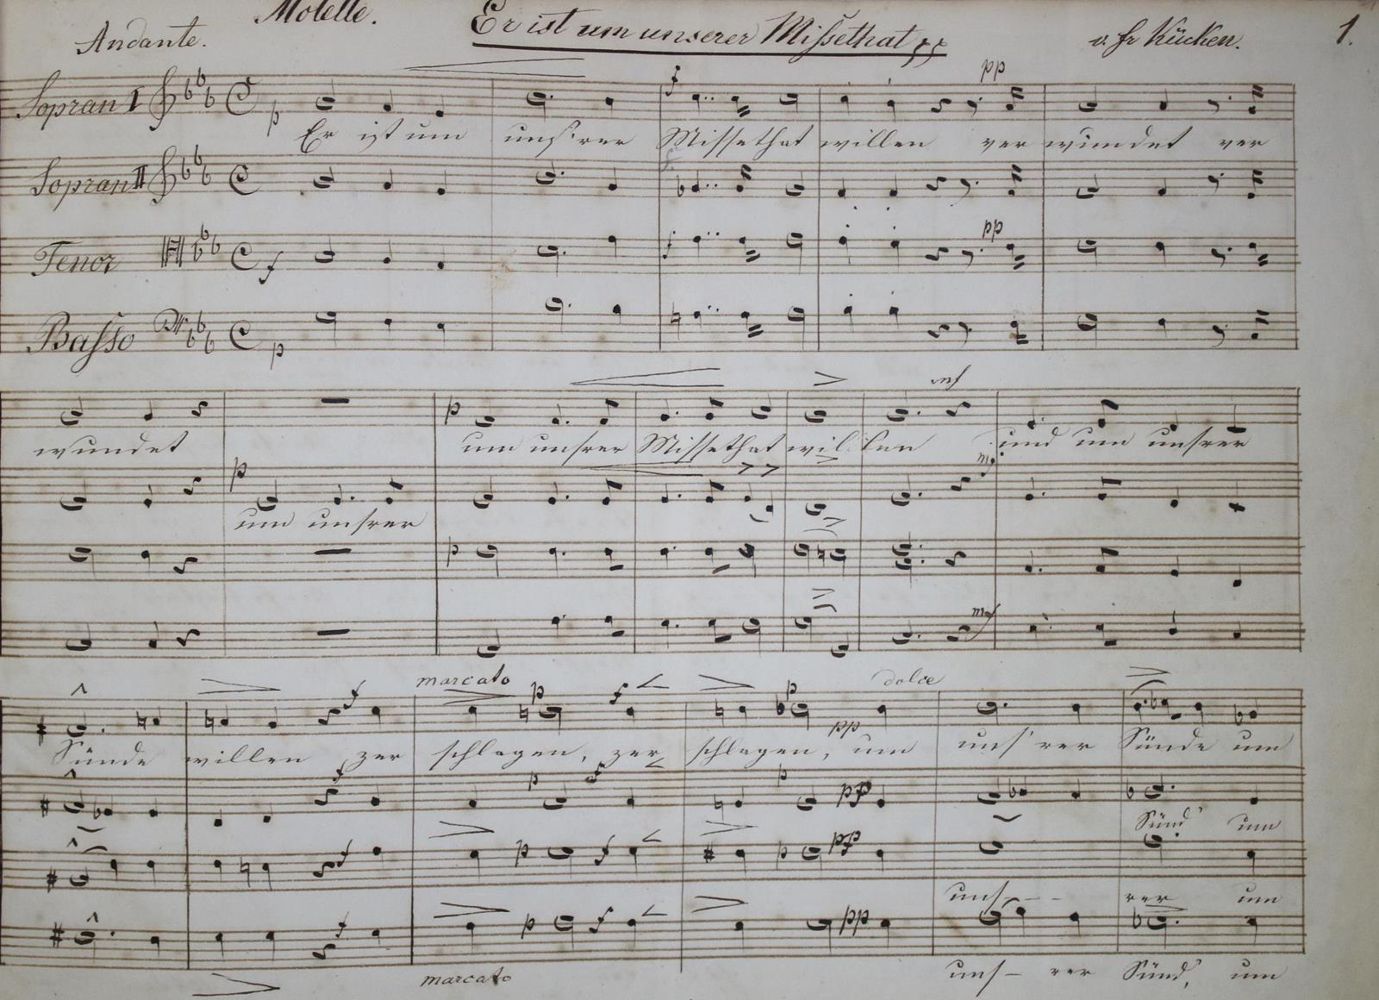 Motette. Er ist um unserer Missethat 1.
Andante. v. Fr Kücken.
pp
Sopran I
Er ist um uns'rer Missethat willen ver wundet ver
Sopran II
pp
Tenor
Basso
mf
wundet um unsrer Missethat willen und um unsrer
um unsrer
mf
marcato dolce
Sünde willen zer schlagen, zer schlagen, um uns'rer Sünde um
pp
Sünd' um
pp
uns - - rer um
pp
marcato uns - rer Sünd', um